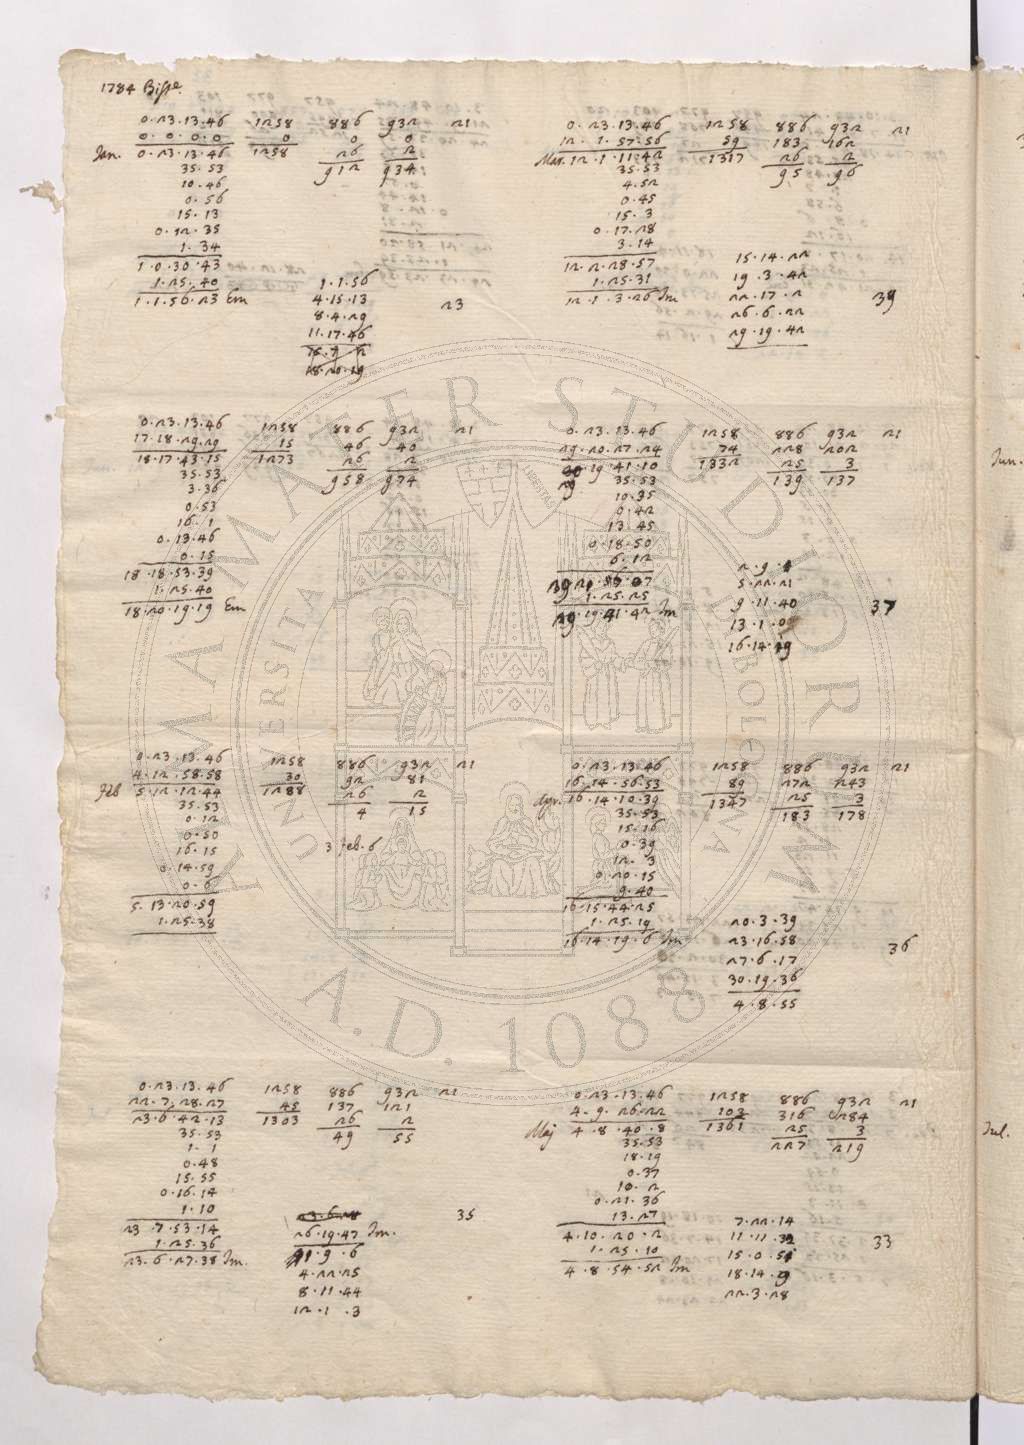 1784 Bisse.
0.23.13.46 1258 886 932 21
0.0.0.0 0 0 0
Jan. 0.23.13.46 1258 26 2
35.53 912 934
10.46
0.56
15.13
0.12.35
1.34
1.0.30.43
1.25.40 1.1.56
1.1.56.23 Em 4.15.13 23
8.4.29
11.17.46
18.20.19
0.23.13.46 1258 886 932 21
17.18.29.29 15 46 40
18.17.43.15 1273 26 2
35.53 958 974
3.36
0.53
16.1
0.13.46
0.15
18.18.53.39
1.25.40
18.20.19.19 Em
0.23.13.46 1258 886 932 21
4.12.58.58 30 92 81
Feb 5.12.12.44 1288 26 2
35.53 4 15
0.12
0.50
16.15 3 feb. 6
0.14.59
0.6
5.13.20.59
1.25.38
0.23.13.46 1258 886 932 21
22.7.28.27 45 137 121
23.6.42.13 1303 26 2
35.53 49 55
1.1
0.48
15.55
0.16.14
1.10 35
23.7.53.14 26.19.47 Im.
1.25.36 1.9.6
23.6.27.38 Im. 4.22.25
8.11.44
12.1.3
0.23.13.46 1258 886 932 21
12.1.57.56 59 183 162
Mar. 12.1.11.42 1317 26 2
35.53 95 96
4.52
0.45
15.3
0.17.28
3.14 15.14.22
12.2.28.57 19.3.42
1.25.31 22.17.2
12.1.3.26 Im 26.6.22 39
29.19.42
0.23.13.46 1258 886 932 21
29.20.27.24 74 228 202
29.19.41.10 1332 25 3
35.53 139 137
10.35
0.42
13.45
0.18.50
6.12 2.9.1
5.22.21
1.25.25 9.11.40 37
29.19.41.42 Im 13.1.0
16.14.19
0.23.13.46 1258 886 932 21
16.14.56.53 89 272 243
Apr. 16.14.10.39 1347 25 3
35.53 183 178
15.16
0.39
12.3
0.20.15
9.40
16.15.44.25 20.3.39
1.25.19 23.16.58
16.14.19.6 Im 27.6.17 36
30.19.36
4.8.55
0.23.13.46 1258 886 932 21
4.9.26.22 103 316 284
Maj 4.8.40.8 1361 25 3
35.53 227 219
18.19
0.37
10.2
0.21.36
13.27 7.22.14
4.10.20.2 11.11.32 33
1.25.10 15.0.51
4.8.54.52 Im 18.14.9
22.3.28
Jun.
Jul.